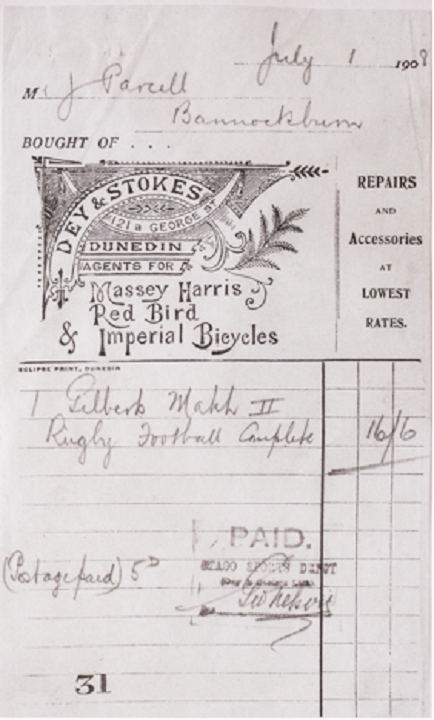 July 1 1908
Mr J Parcell
Bannockburn
BOUGHT OF . . .
DEY & STOKES
121a GEORGE ST
DUNEDIN
AGENTS FOR
Massey Harris
Red Bird
& Imperial Bicycles
REPAIRS
AND
Accessories
AT
LOWEST
RATES.
ECLIPSE PRINT, DUNEDIN
1 Gilberts Match II
Rugby Football Complete 16/6
PAID.
OTAGO SPORTS DEPOT
(Postage paid) 5D
31